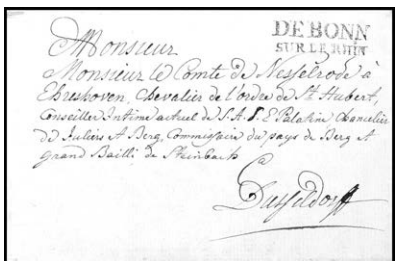 DE BONN
SUR LE RHIN
Monsieur
Monsieur le Comte de Nesselrode à
Ehreshoven, Chevalier de l'ordre de St Hubert,
Conseiller Intime actuel de S. A. S. E Palatine Chancelier
de Juliers et Berg, Commissaire du pays de Berg et
Grand Bailli de Steinbach
Dusseldorff